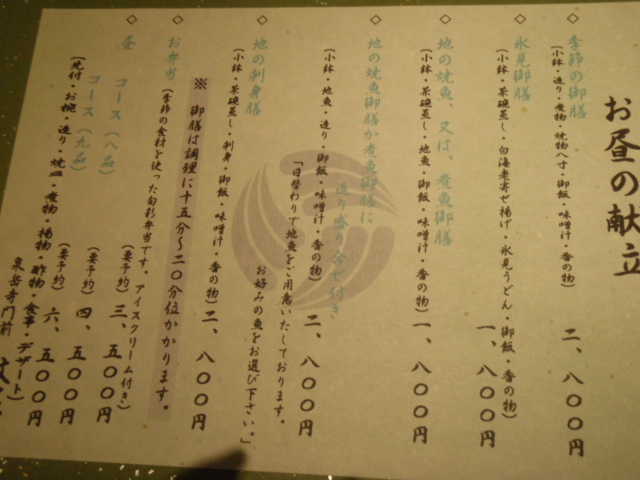 お昼の献立
◇ 季節の御膳
(小鉢・造り・煮物・焼物八寸・御飯・味噌汁・香の物) 二、八〇〇円
◇ 氷見御膳
(小鉢・茶碗蒸し・白海老寄せ揚げ・氷見うどん・御飯・香の物)
一、八〇〇円
◇ 地の焼魚、又は、煮魚御膳
(小鉢・茶碗蒸し・地魚・御飯・味噌汁・香の物) 一、八〇〇円
◇ 地の焼魚御膳か煮魚御膳に
造り盛り合せ付き
(小鉢・地魚・造り・御飯・味噌汁・香の物) 二、八〇〇円
「日替わりで地魚をご用意いたしております。
お好みの魚をお選び下さい。」
◇ 地の刺身膳
(小鉢・茶碗蒸し・刺身・御飯・味噌汁・香の物) 二、八〇〇円
※ 御膳は調理に十五分〜二〇分位かかります。
◇ お弁当
(季節の食材を使った旬彩弁当です。アイスクリーム付き)
(要予約) 三、五〇〇円
◇ 昼 コース(八品) (要予約) 四、五〇〇円
コース(九品) (要予約) 六、五〇〇円
(先付・お椀・造り・焼皿・煮物・揚物・酢物・食事・デザート)
泉岳寺門前